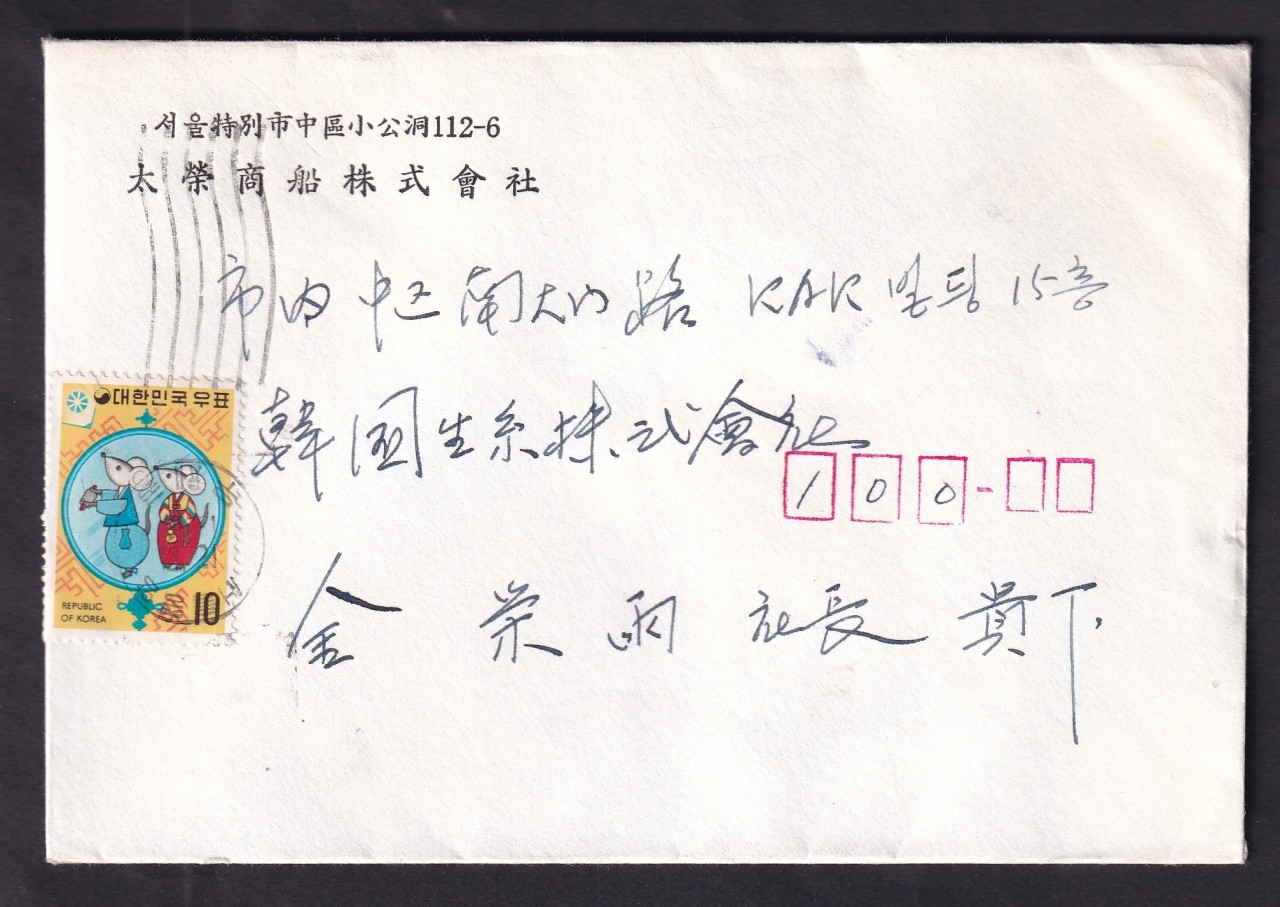 서울特別市中區小公洞112-6
太榮商船株式會社
市內 中区 南大門路 KAK 빌딩 15층
韓国生糸株式會社
100-
金 栄 雨 社長 貴下
대한민국 우표
REPUBLIC
OF KOREA
10